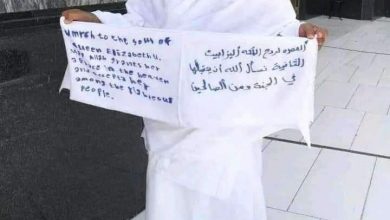 Umrah to the soul of
Queen Elizabeth II,
Allah grants her
a place in the heaven
and accepts her
among the righteous
people.
العمرة لروح الملكة اليزابيث
الثانية نسأل الله أن يتقبلها
في الجنة ومن الصالحين